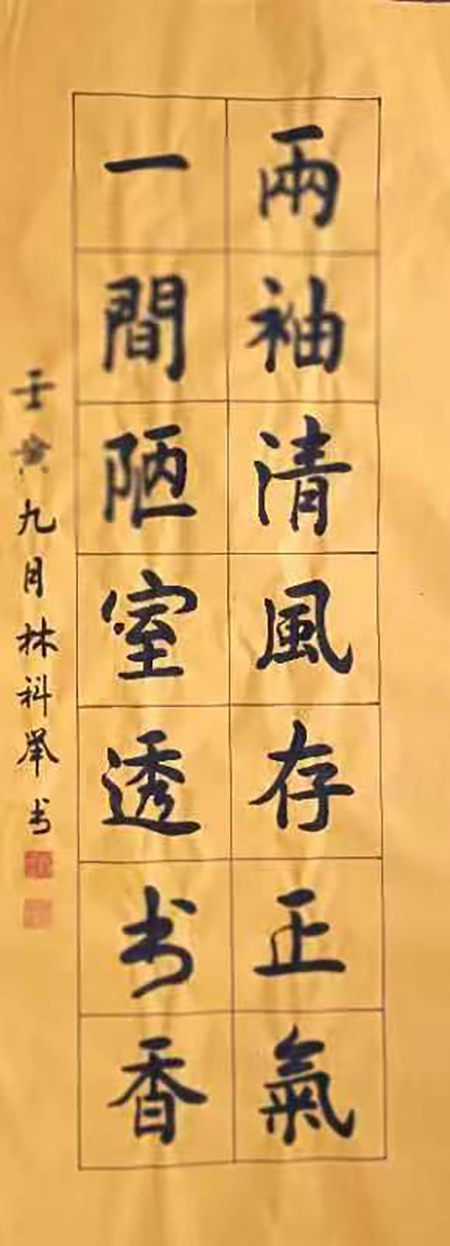 兩袖清風存正氣
一間陋室透书香
壬寅九月林科举书